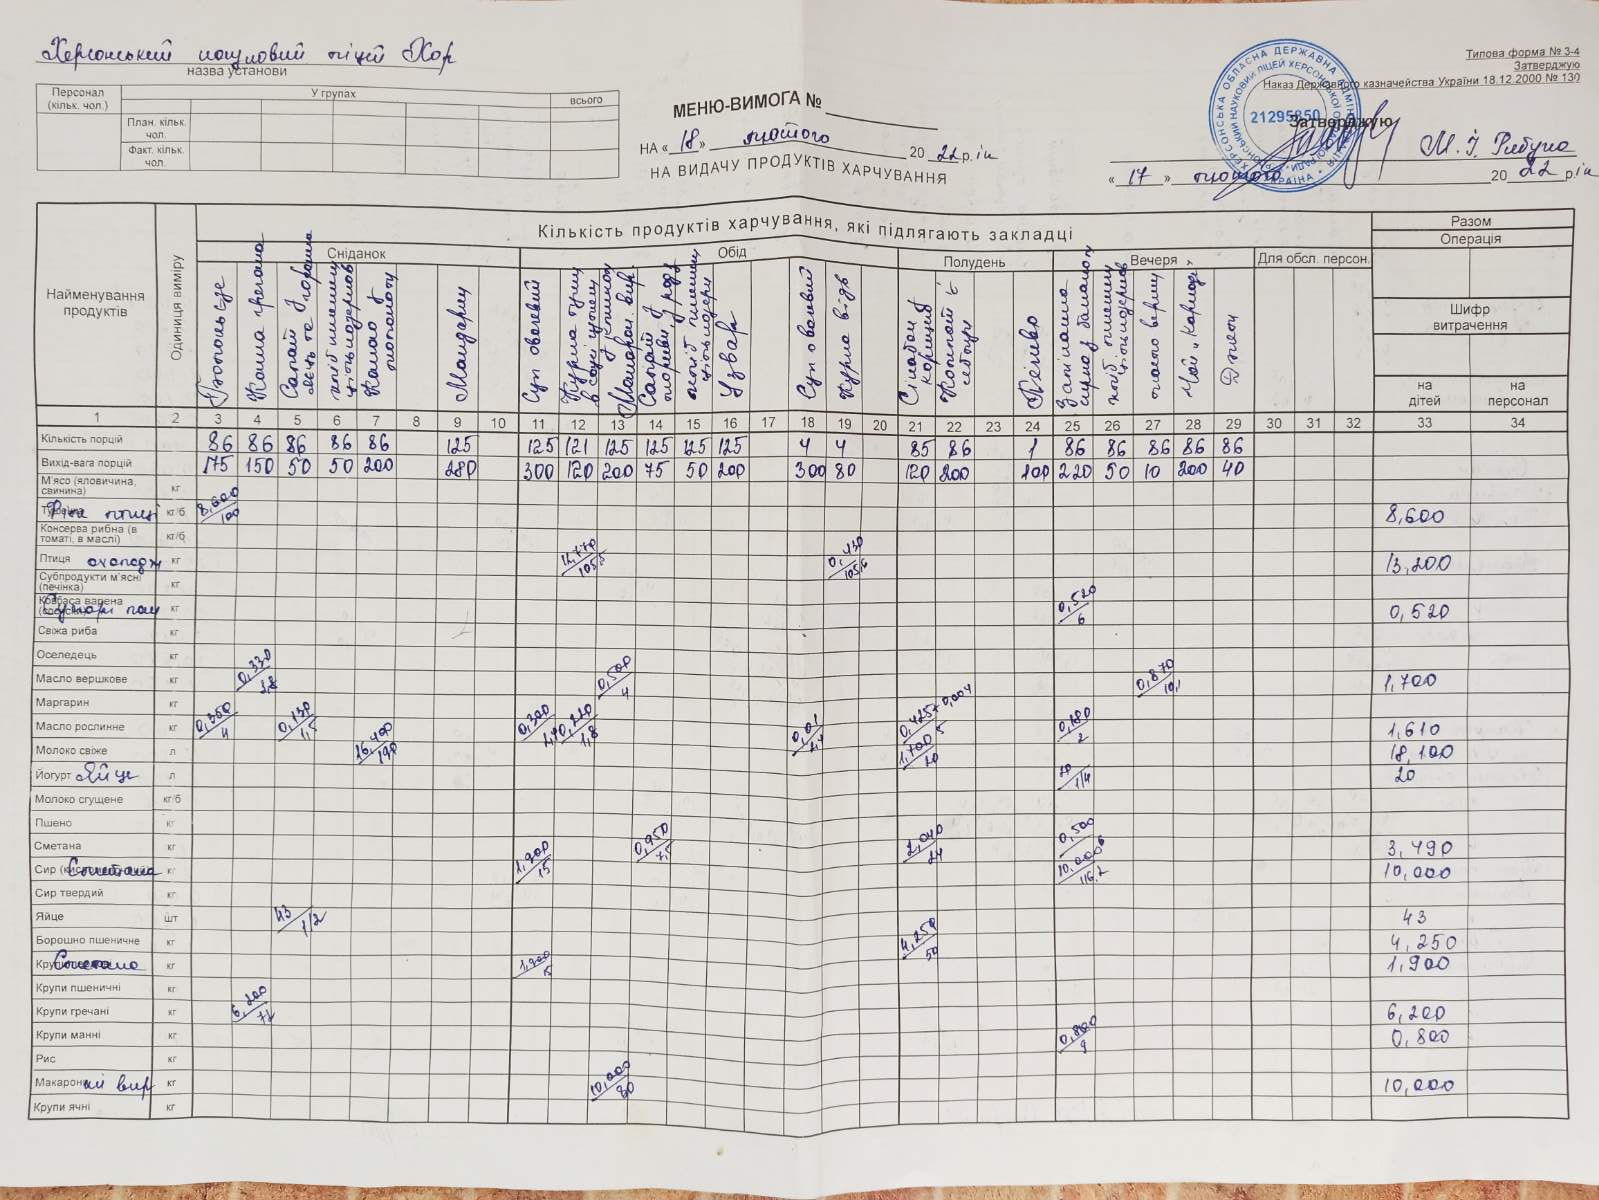 Херсонський науковий ліцей ХОР
назва установи
Типова форма № 3-4
Затверджую
Наказ Державного казначейства України 18.12.2000 № 130
Персонал (кільк. чол.) У групах всього
План. кільк. чол.
Факт. кільк. чол.
МЕНЮ-ВИМОГА №
НА «18» лютого 2022 р.
НА ВИДАЧУ ПРОДУКТІВ ХАРЧУВАННЯ
21295850
Затверджую
М. І. Рябуха
«17» лютого 2022 р.
Кількість продуктів харчування, які підлягають закладці
Разом
Операція
Сніданок Обід Полудень Вечеря Для обсл. персон.
Найменування продуктів
Одиниця виміру
Каша гречана
Какао з молоком
Мандарин
Суп овочевий
Узвар
Суп овочевий
Курка відв
Печиво
Чай "Каркаде"
Джем
Шифр витрачення
на дітей на персонал
1 2 3 4 5 6 7 8 9 10 11 12 13 14 15 16 17 18 19 20 21 22 23 24 25 26 27 28 29 30 31 32 33 34
Кількість порцій 86 86 86 86 86 125 125 121 125 125 125 125 4 4 85 86 1 86 86 86 86 86
Вихід-вага порцій 175 150 50 50 200 280 300 120 200 75 50 200 300 80 120 200 200 220 50 10 200 40
М'ясо (яловичина, свинина) кг
кг/б 8,600/100 8,600
Консерва рибна (в томаті, в маслі) кг/б
Птиця охолодж кг 0,430/105,6 13,200
Субпродукти м'ясні (печінка) кг
Ковбаса варена кг 0,520/6 0,520
Свіжа риба кг
Оселедець кг
Масло вершкове кг 0,330/3,8 0,500/4 0,870/10,1 1,700
Маргарин кг
Масло рослинне кг 0,350/4 0,130/1,5 0,300 0,220/1,8 0,01 0,425+0,004/5 0,180/2 1,610
Молоко свіже л 16,400/190 1,700/20 18,100
Йогурт Яйце л 20 1/4 20
Молоко сгущене кг/б
Пшено кг
Сметана кг 0,950/7,5 2,040/24 0,500/6 3,490
Сир Сметана кг 1,900/15 10,000/116,2 10,000
Сир твердий кг
Яйце шт 43 1/2 43
Борошно пшеничне кг 4,250/50 4,250
Сметана кг 1,900 1,900
Крупи пшеничні кг
Крупи гречані кг 6,200/72 6,200
Крупи манні кг 0,800/9 0,800
Рис кг
Макаронні вир кг 10,000/80 10,000
Крупи ячні кг